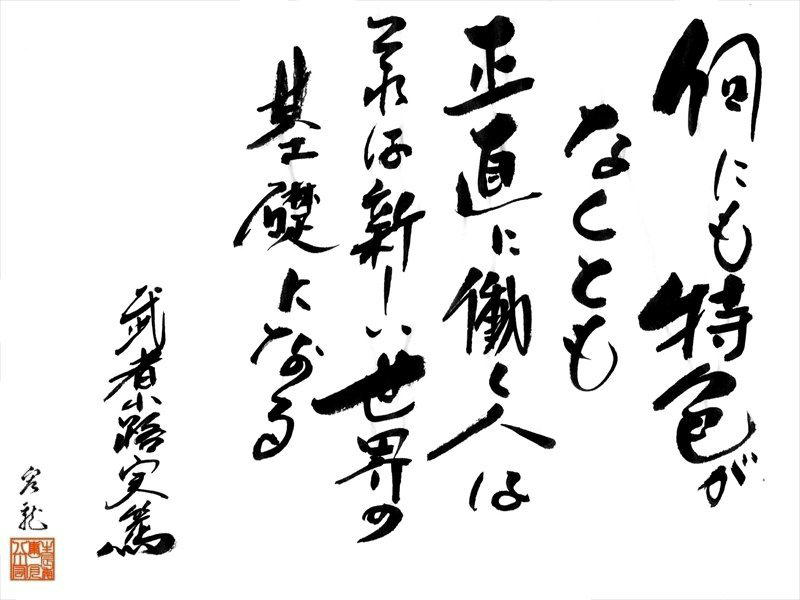 何にも特色が
なくとも
正直に働く人は
それは新しい世界の
基礎になる
武者小路実篤